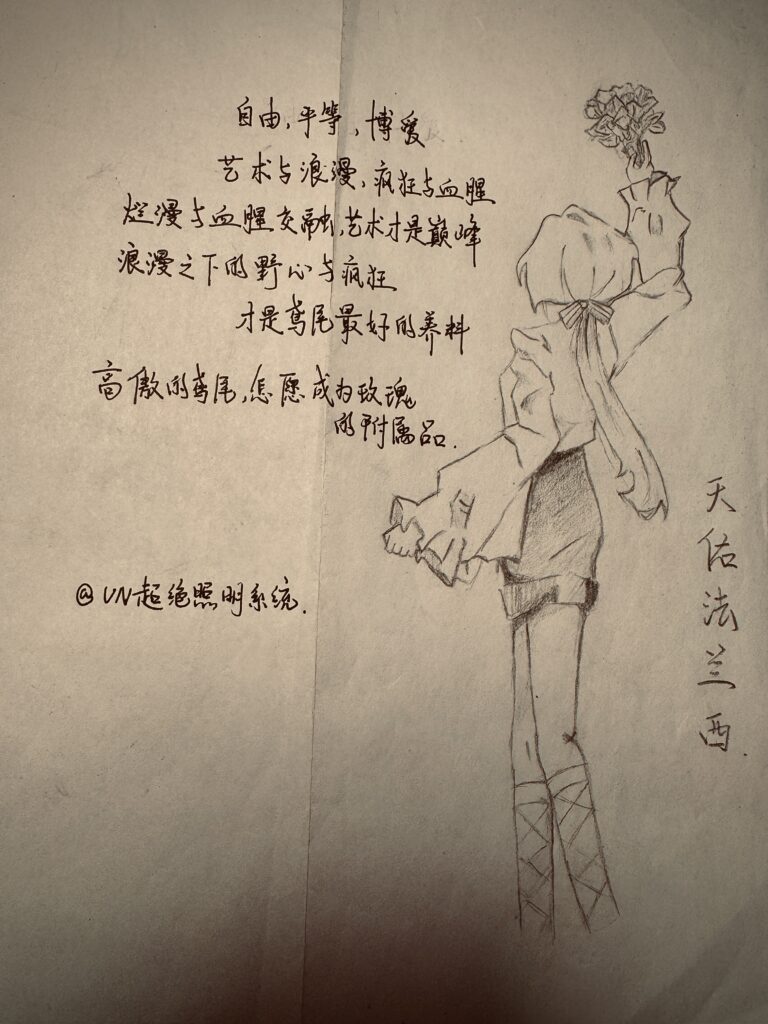 自由，平等，博爱
艺术与浪漫，疯狂与血腥
烂漫与血腥交融，艺术才是巅峰
浪漫之下的野心与疯狂
才是鸢尾最好的养料
高傲的鸢尾，怎愿成为玫瑰
的附属品.
@UN超绝照明系统.
天佑法兰西